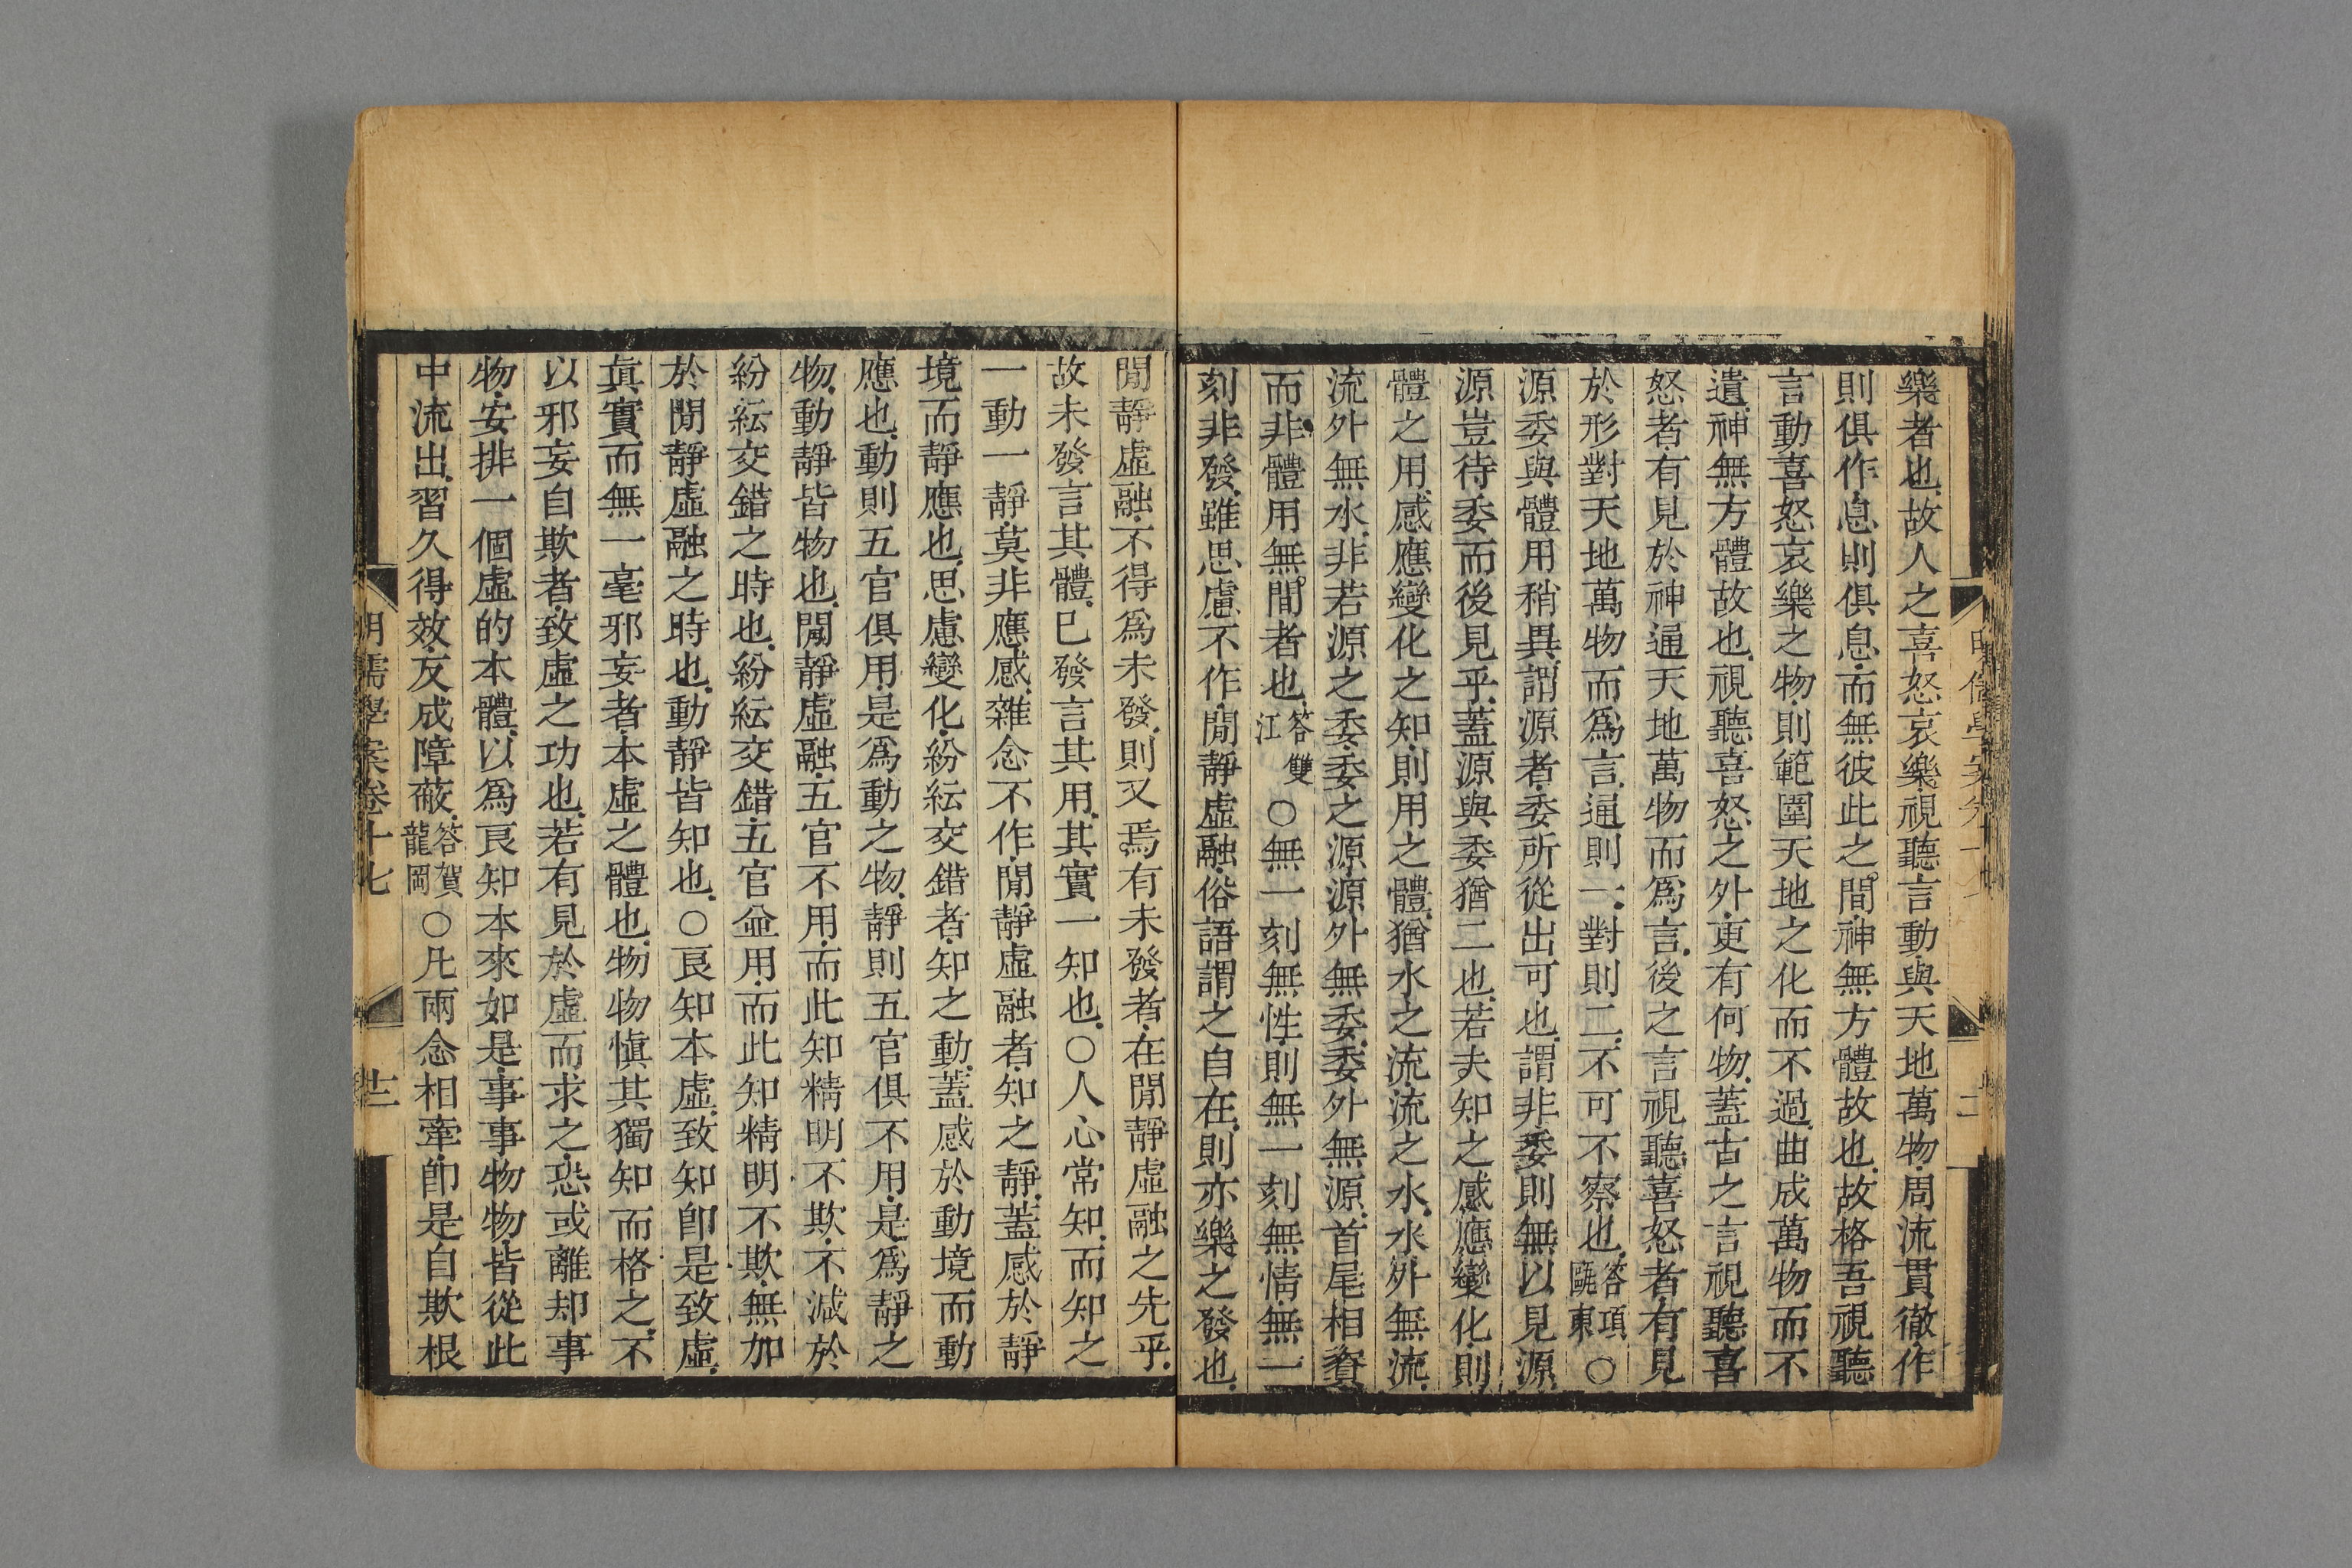 樂者也故人之喜怒哀樂視聽言動與天地萬物周流貫徹作
則俱作息則俱息而無彼此之間神無方體故也故格吾視聽
言動喜怒哀樂之物則範圍天地之化而不過曲成萬物而不
遺神無方體故也視聽喜怒之外更有何物蓋古之言視聽喜
怒者有見於神通天地萬物而爲言後之言視聽喜怒者有見
於形對天地萬物而爲言通則一對則二不可不察也答項甌東○
源委與體用稍異謂源者委所從出可也謂非委則無以見源
源豈待委而後見乎蓋源與委猶二也若夫知之感應變化則
體之用感應變化之知則用之體猶水之流流之水水外無流
流外無水非若源之委委之源源外無委委外無源首尾相資
而非體用無間者也答雙江○無一刻無性則無一刻無情無一
刻非發雖思慮不作閒靜虛融俗語謂之自在則亦樂之發也
閒靜虛融不得爲未發則又焉有未發者在閒靜虛融之先乎
故未發言其體已發言其用其實一知也○人心常知而知之
一動一靜莫非應感雜念不作閒靜虛融者知之靜蓋感於靜
境而靜應也思慮變化紛紜交錯者知之動蓋感於動境而動
應也動則五官俱用是爲動之物靜則五官俱不用是爲靜之
物動靜皆物也閒靜虛融五官不用而此知精明不欺不減於
紛紜交錯之時也紛紜交錯五官並用而此知精明不欺無加
於閒靜虛融之時也動靜皆知也○良知本虛致知卽是致虛
眞實而無一毫邪妄者本虛之體也物物愼其獨知而格之不
以邪妄自欺者致虛之功也若有見於虛而求之恐或離却事
物安排一個虛的本體以爲良知本來如是事事物物皆從此
中流出習久得效反成障蔽答賀龍岡○凡兩念相牽卽是自欺根
明儒學案卷十七